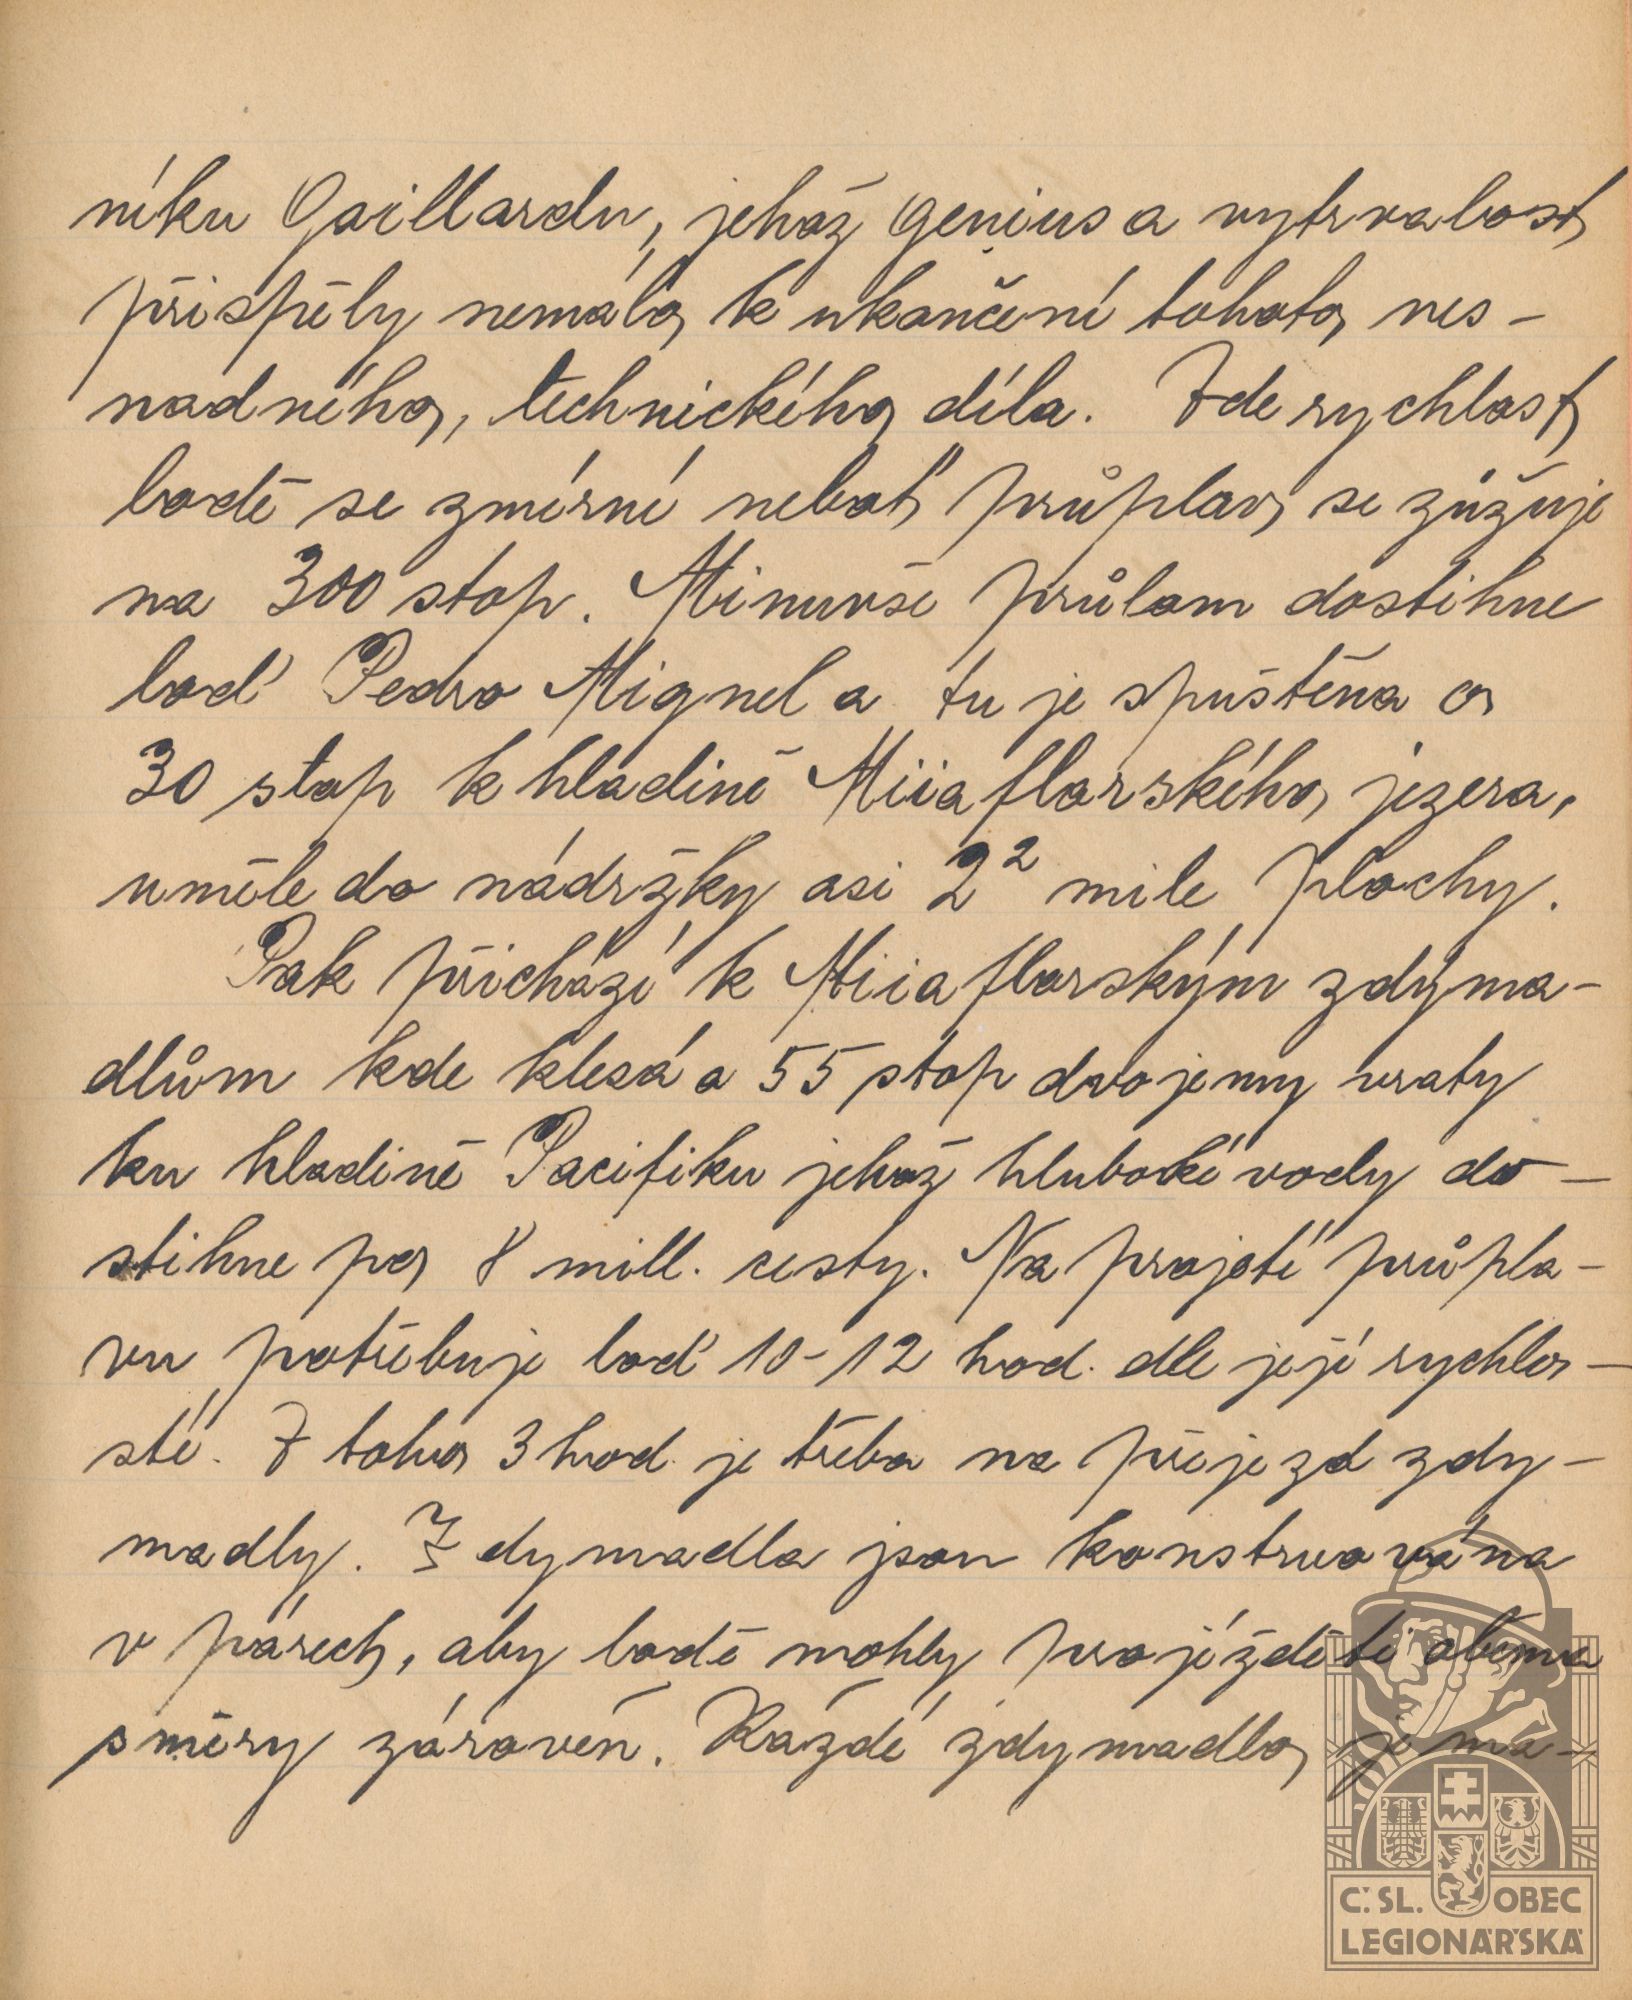 níku Gaillardu, jehož genius a vytrvalost
přispěly nemálo k ukončení tohoto nes-
nadného, technického díla. Zde rychlost
lodě se zmírní neboť průplav se zúžuje
na 300 stop. Minuvše průlom dostihne
loď Pedro Miguel a tu je spuštěna o
30 stop k hladině Miiaflorského jezera,
uměle do nádržky asi 2² mile plochy.
Pak přichází k Miiaflorským zdýma-
dlům kde klesá o 55 stop dvojemy vraty
ku hladině Pacifiku jehož hluboké vody do-
stihne po 8 mill. cesty. Na projetí průpla-
vu potřebuje loď 10-12 hod. dle její rychlo-
sti. Z toho 3 hod. je třeba na přejezd zdy-
madly. Zdymadla jsou konstruována
v párech, aby lodě mohly projížděti oběma
směry zároveň. Každé zdymadlo je ma-
Č. SL. OBEC
LEGIONÁŘSKÁ